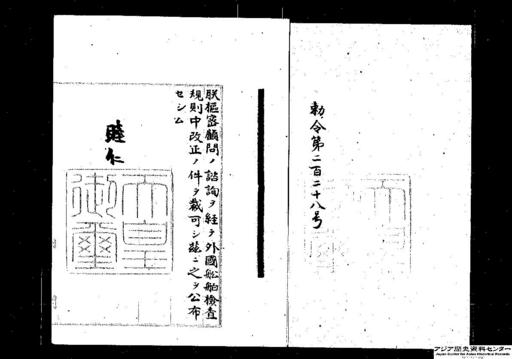 勅令第二百二十八号
朕樞密顧問ノ諮詢ヲ経テ外國船舶檢査
規則中改正ノ件ヲ裁可シ茲ニ之ヲ公布
セシム
睦仁
天皇
御璽
アジア歴史資料センター
Japan Center for Asian Historical Records